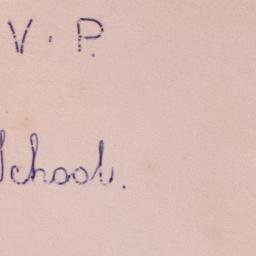 V. P.
School.